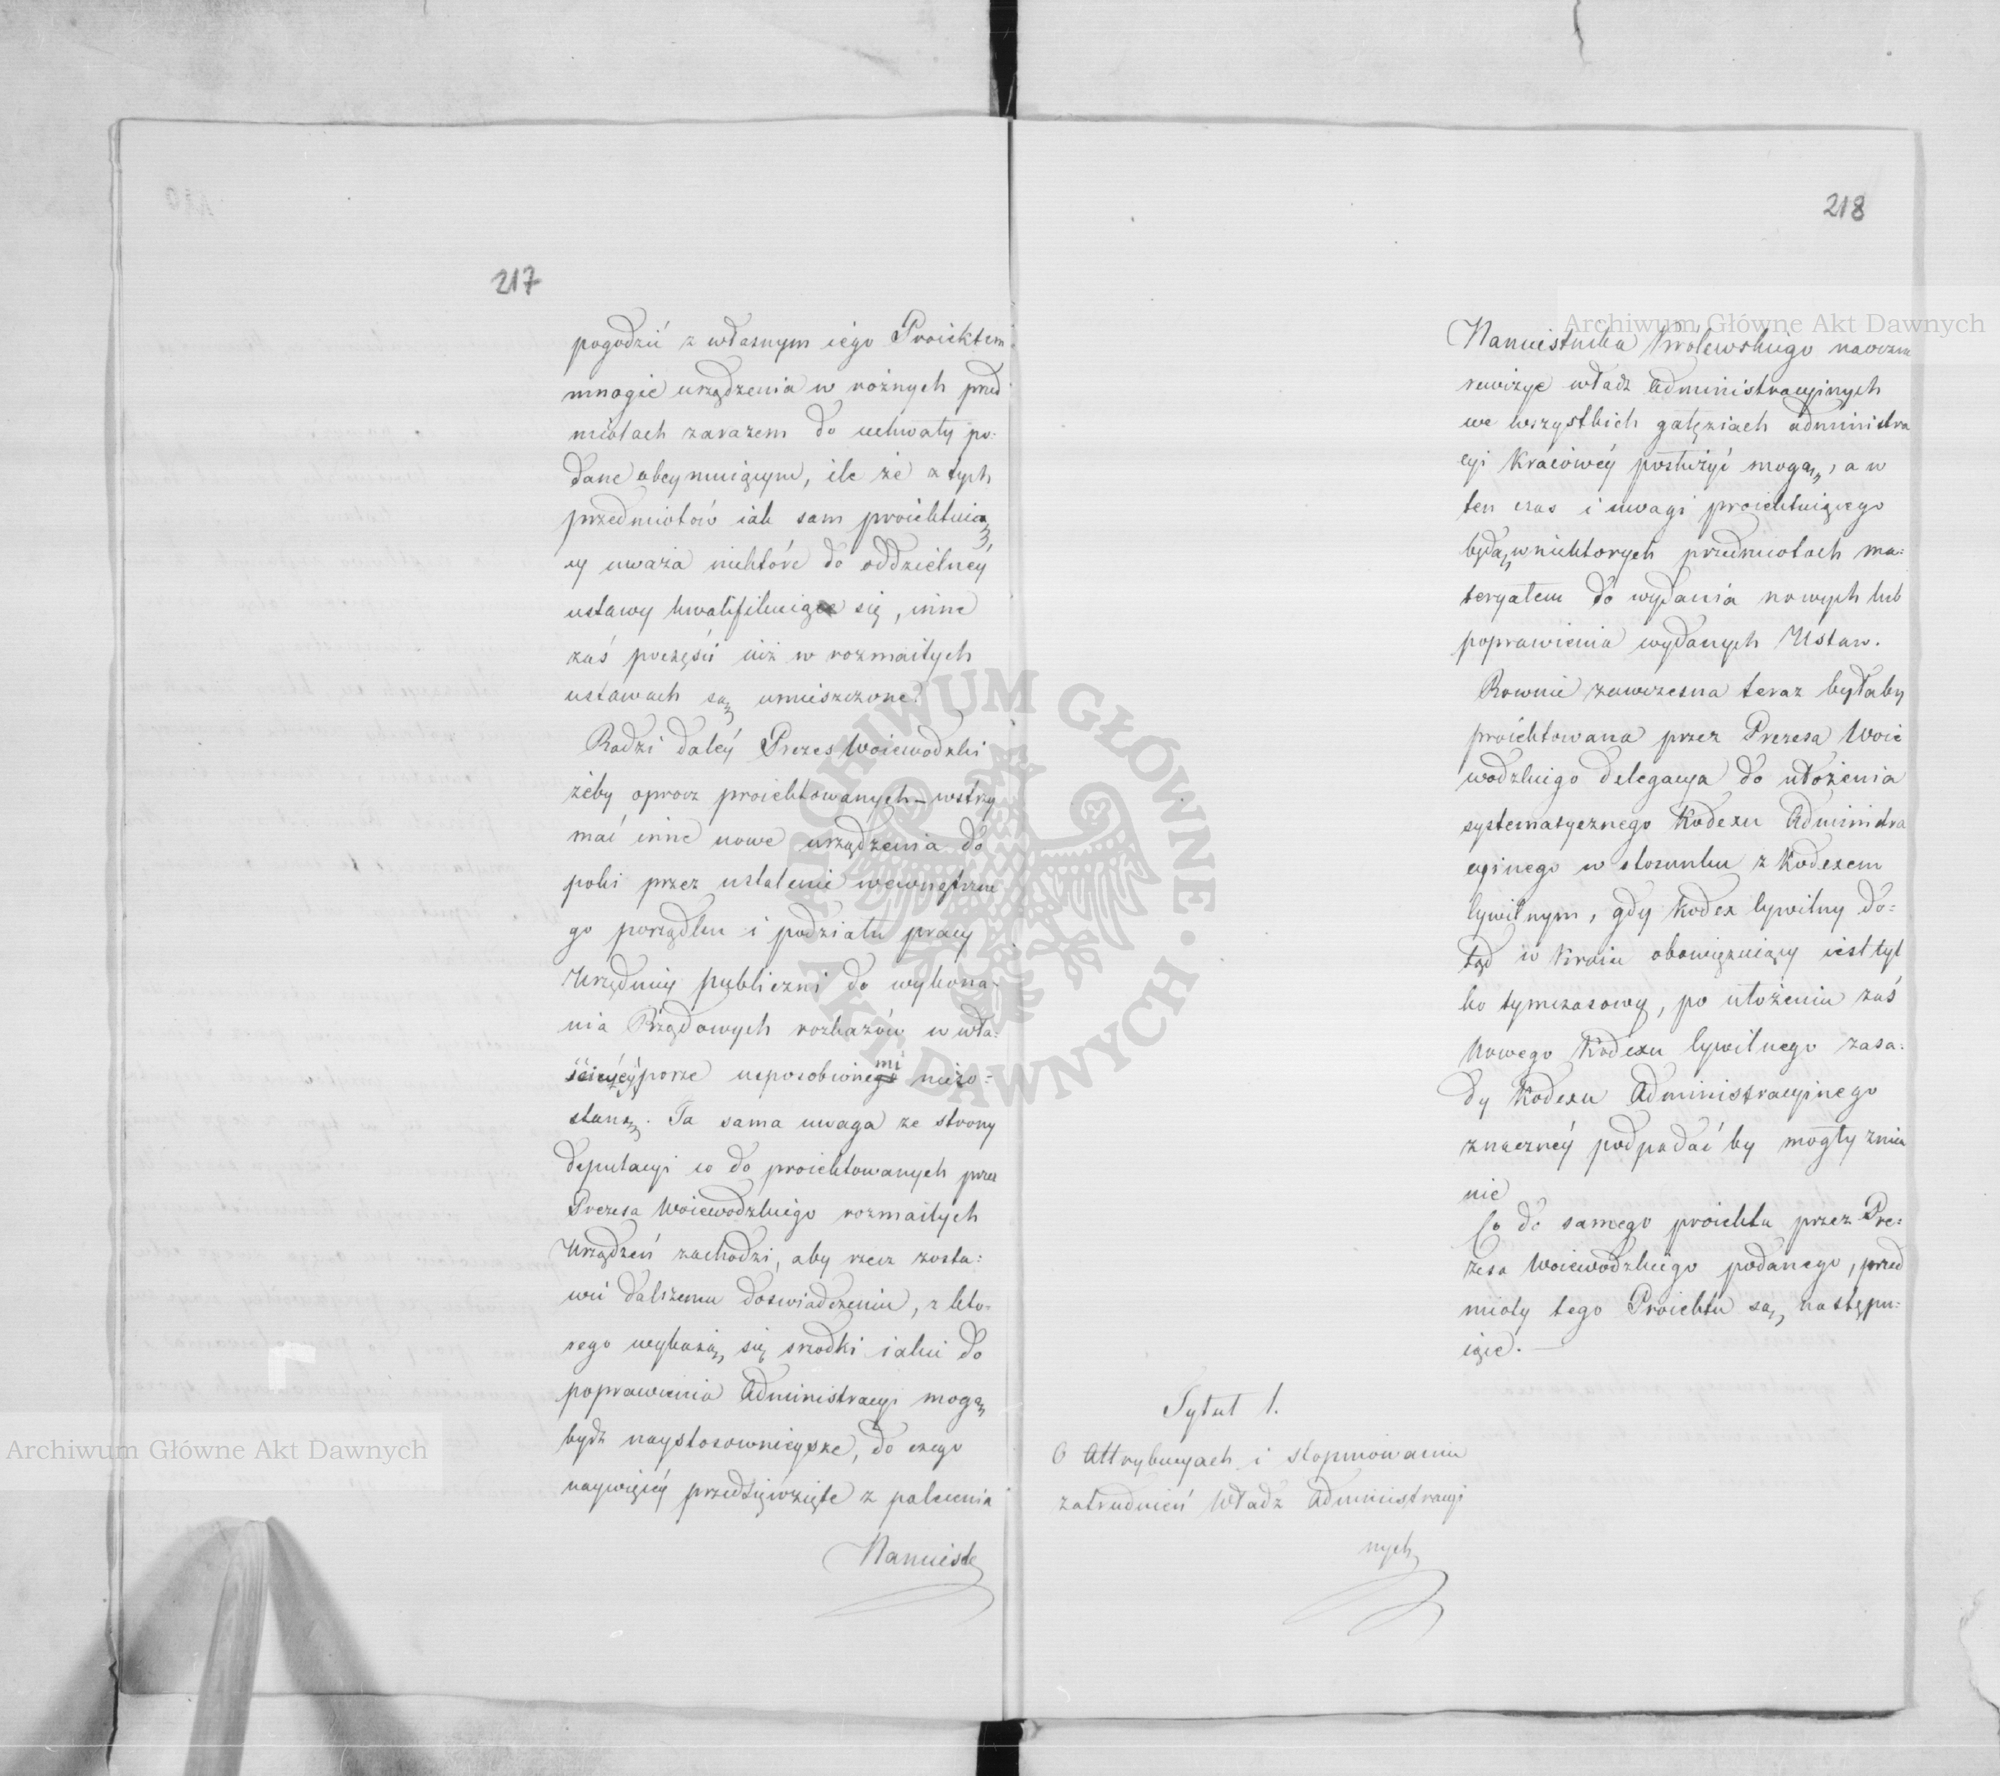 217
pogodzić z własnym iego Proiektem
mnogie urządzenia w rożnych przed
miotach zarazem do uchwały po:
dane obeymuiącym, ile że z tych
przedmiotów iak sam proiektuią
cy uważa niektóre do oddzielnéy
ustawy kwalifikuiące się, inne
zaś poczęści iuż w rozmaitych
ustawach są umieszczone.
Radzi daléy Prezes Woiewodzki
żeby oprocz proiektowanych – wstrzy
mać inne nowe urządzenia do
poki przez ustalenie wewnętrzne
go porządku i podziału pracy
Urzędnicy publiczni do wykona:
nia Rządowych rozkazów w wła:
ściwéy porze usposobionemi niezo:
staną. Ta sama uwaga ze strony
deputacyi co do proiektowanych przez
Prezesa Woiewodzkiego rozmaitych
Urządzeń zachodzi, aby rzecz zosta:
wić dalszemu doswiadczeniu, z kto:
rego wykażą się srzodki iakie do
poprawienia Administracyi mogą
bydź naystosownieysze, do czego
naywięcéy przedsięwzięte z polecenia
Namiest
218
Namiestnika Królewskiego naoczne
rewizye władz Administracyinych
we wszystkich gałęziach administra
cyi Kraiowéy posłużyć mogą, a w
ten czas i uwagi proiektuiącego
będą w niektorych przedmiotach ma:
teryałem do wydania nowych lub
poprawienia wydanych Ustaw.
Rownie zawczesna teraz byłaby
proiektowana przez Prezesa Woie
wodzkiego delegacya do ułożenia
systematycznego Kodexu Administra
cyinego w stosunku z Kodexem
Cywilnym, gdy Kodex Cywilny do:
tąd w Kraiu obowięzuiący iest tyl
ko tymczasowy, po ułożeniu zaś
Nowego Kodexu Cywilnego zasa:
dy Kodexu Administracyinego
znacznéy podpadać by mogły zmia
nie
Co do samego proiektu przez Pre:
zesa Woiewodzkiego podanego, przed
mioty tego Proiektu są, następu:
iące. —
Tytuł 1.
O Attrybucyach i stopniowaniu
zatrudnień Władz Administracyi
nych
Archiwum Główne Akt Dawnych
Archiwum Główne Akt Dawnych
ARCHIWUM GŁÓWNE AKT DAWNYCH